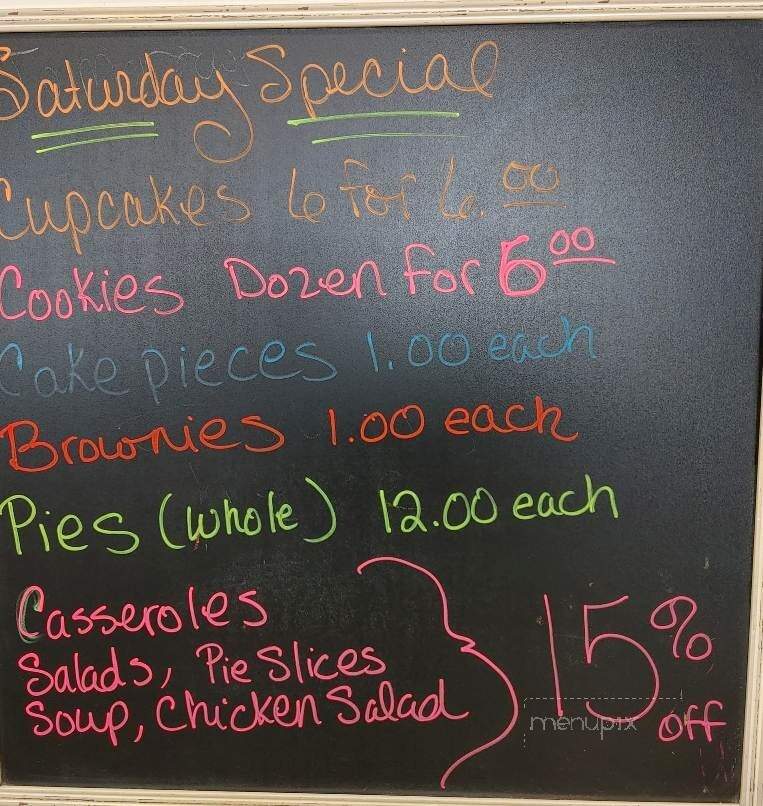 Saturday Special
Cupcakes 6 for 6.00
Cookies Dozen for 5 00
Cake pieces 1.00 each
Brownies 1.00 each
Pies (whole) 12.00 each
Casseroles
Salads, Pie Slices
Soup, Chicken Salad
15% off
menupix